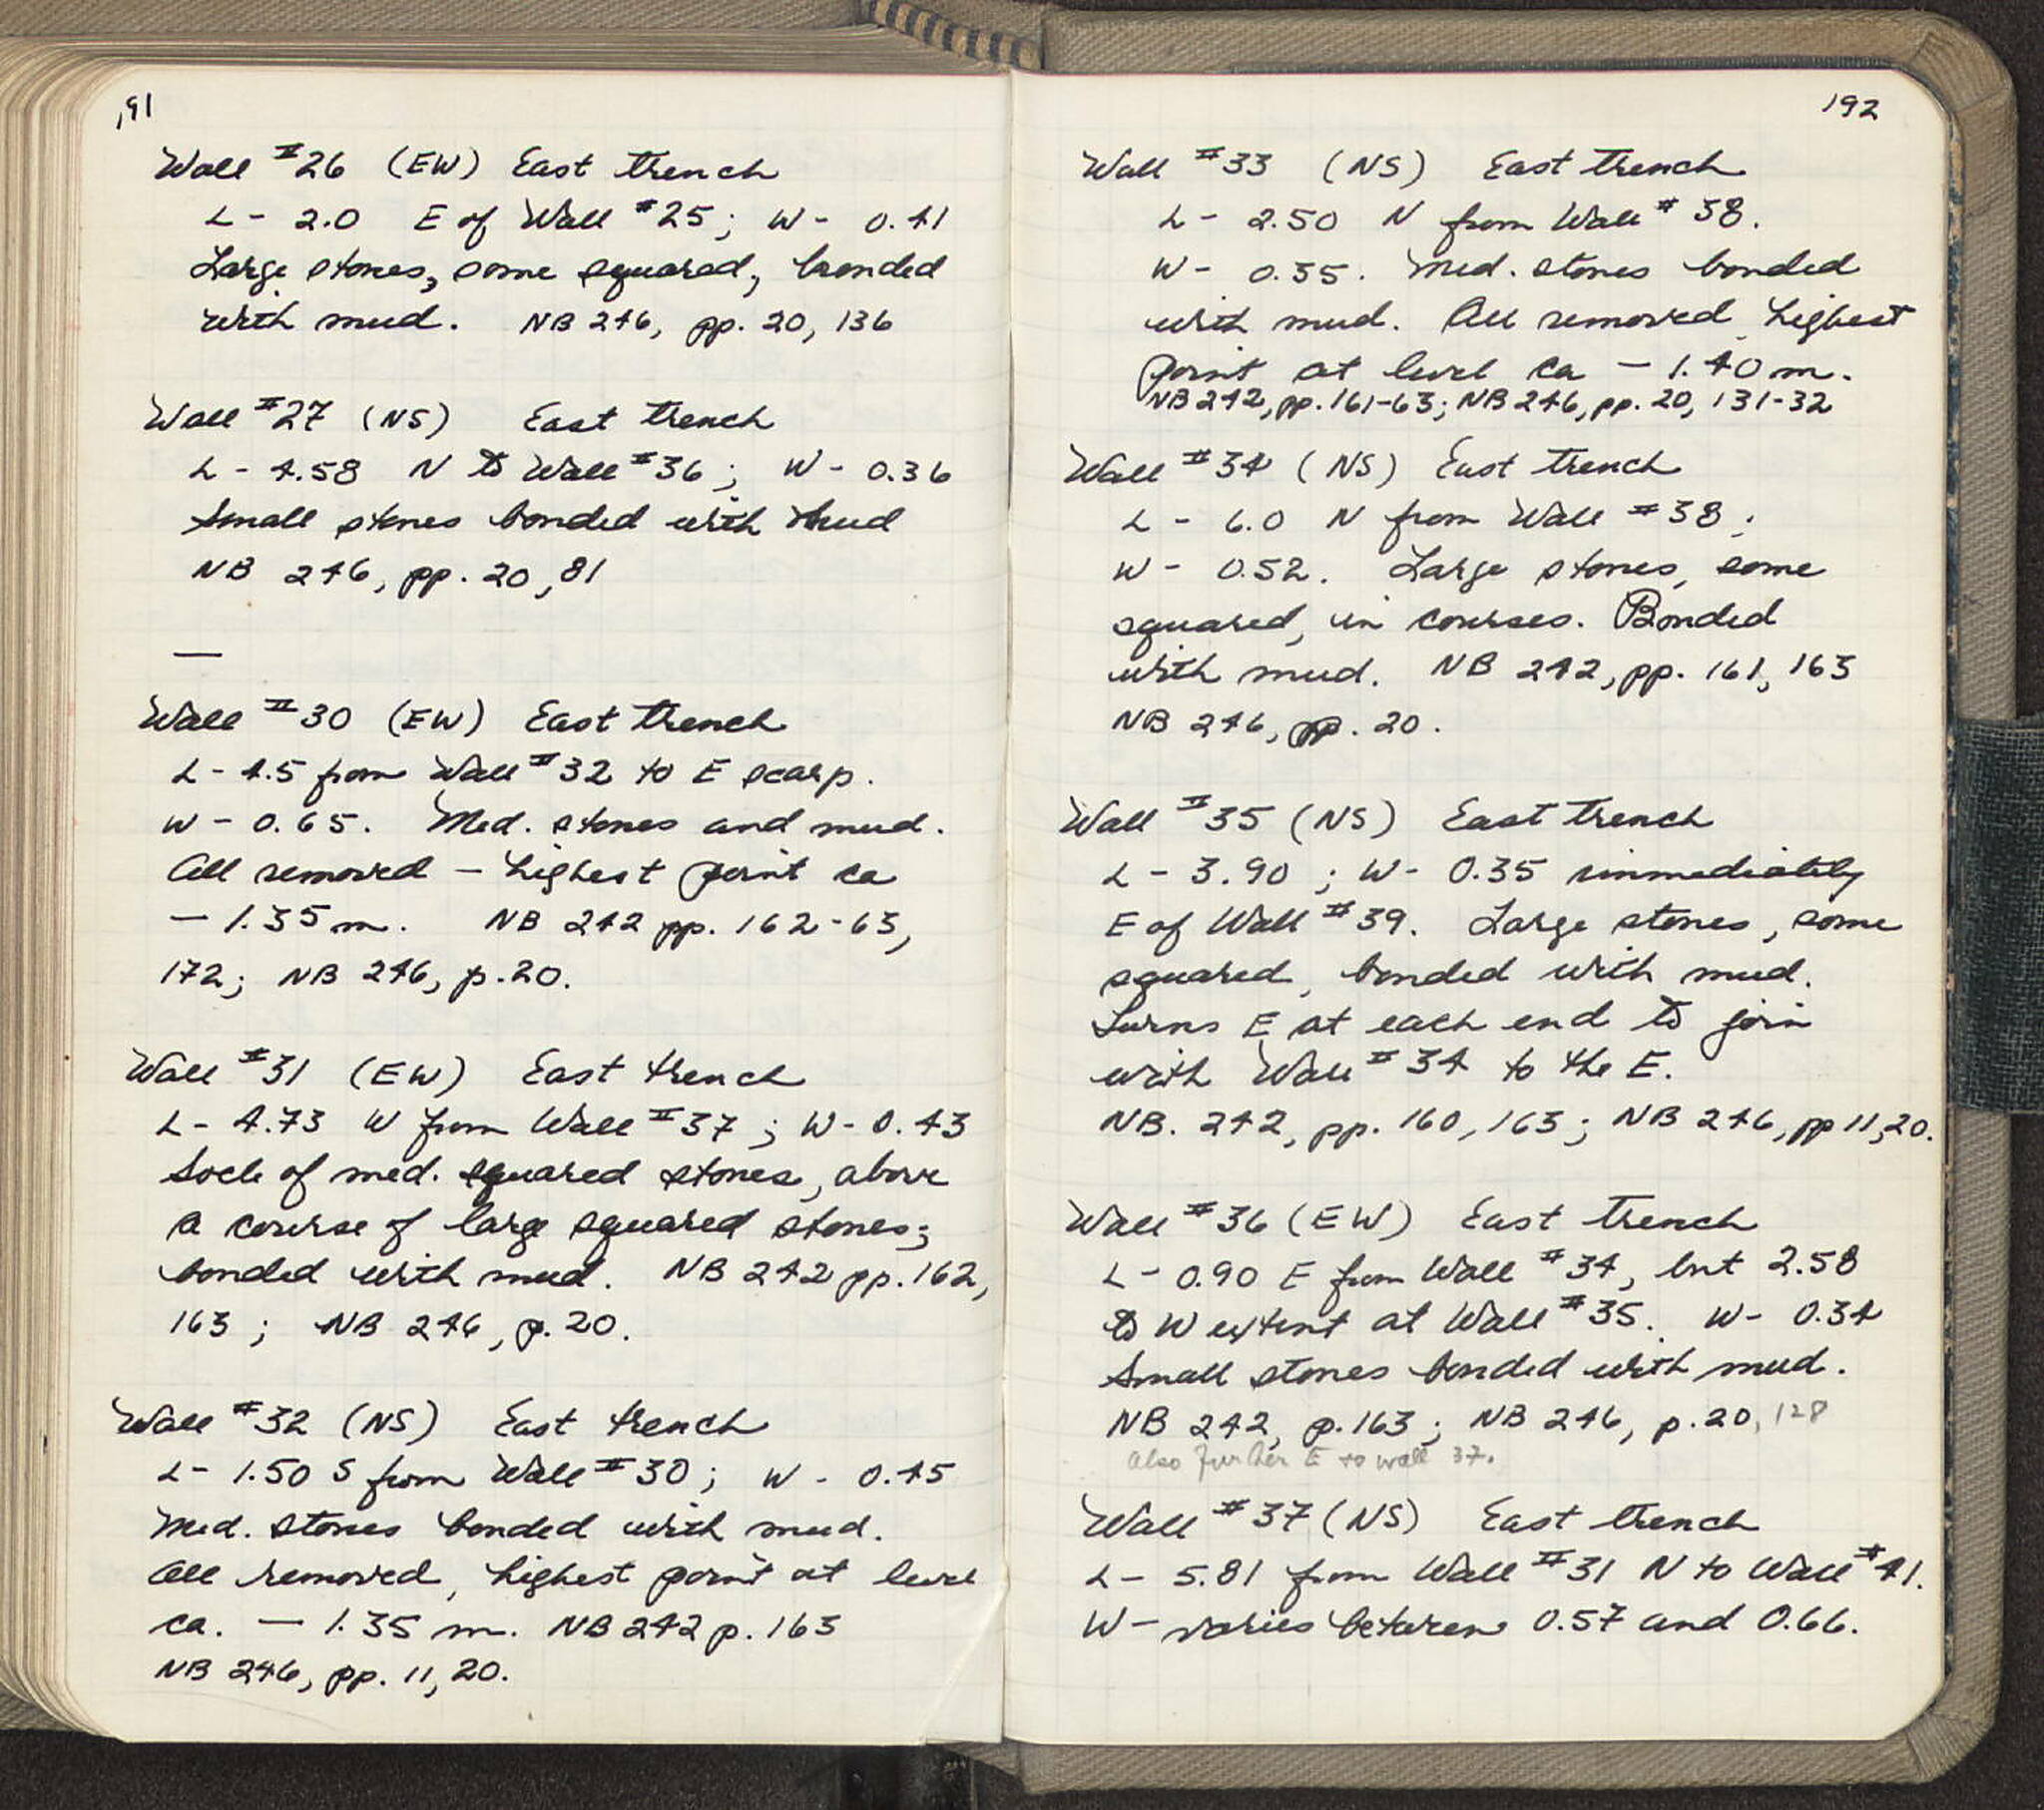 191
Wall #26 (EW) East trench
L - 2.0 E of Wall #25; W - 0.41
Large stones, some squared, bonded
with mud. NB 246, pp. 20, 136
Wall #27 (NS) East trench
L - 4.58 N to Wall #36; W - 0.36
Small stones bonded with mud
NB 246, pp. 20, 81
—
Wall #30 (EW) East trench
L - 4.5 from Wall #32 to E scarp.
W - 0.65. Med. stones and mud.
All removed – highest point ca
– 1.35 m. NB 242 pp. 162-63,
172; NB 246, p. 20.
Wall #31 (EW) East trench
L - 4.73 W from Wall #37; W - 0.43
Socle of med. squared stones, above
a course of large squared stones;
bonded with mud. NB 242 pp. 162,
163; NB 246, p. 20.
Wall #32 (NS) East trench
L - 1.50 S from Wall #30; W - 0.45
Med. stones bonded with mud.
All removed, highest point at level
ca. – 1.35 m. NB 242 p. 163
NB 246, pp. 11, 20.
192
Wall #33 (NS) East trench
L - 2.50 N from Wall #38.
W - 0.35. Med. stones bonded
with mud. All removed, highest
point at level ca – 1.40 m.
NB 242, pp. 161-63; NB 246, pp. 20, 131-32
Wall #34 (NS) East trench
L - 6.0 N from Wall #38;
W - 0.52. Large stones, some
squared, in courses. Bonded
with mud. NB 242, pp. 161, 163
NB 246, pp. 20.
Wall #35 (NS) East trench
L - 3.90; W - 0.35 immediately
E of Wall #39. Large stones, some
squared, bonded with mud.
Turns E at each end to join
with Wall #34 to the E.
NB. 242, pp. 160, 163; NB 246, pp 11, 20.
Wall #36 (EW) East trench
L - 0.90 E from Wall #34, but 2.58
to W extent at Wall #35. W - 0.34
Small stones bonded with mud.
NB 242, p. 163; NB 246, p. 20, 128
also further E to wall 37.
Wall #37 (NS) East trench
L - 5.81 from Wall #31 N to Wall #41.
W - varies between 0.57 and 0.66.